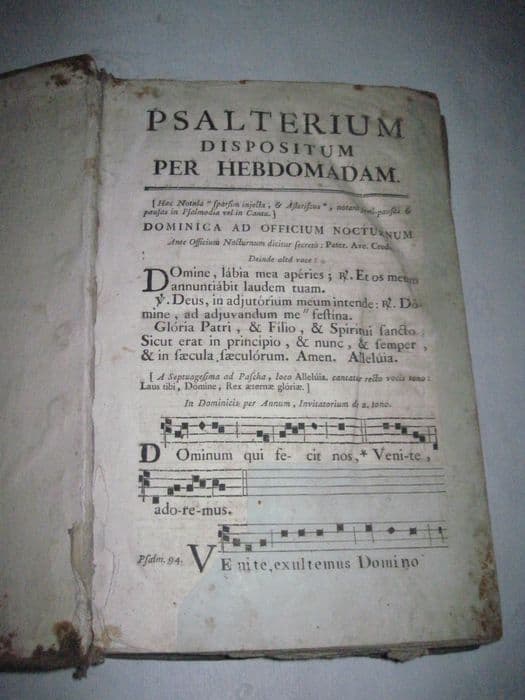 PSALTERIUM
DISPOSITUM
PER HEBDOMADAM.
[ Hæc Notula " sparsim injecta, & Asteriscus *, notant semi-pausas &
pausas in Psalmodia vel in Cantu. ]
DOMINICA AD OFFICIUM NOCTURNUM
Ante Officium Nocturnum dicitur secretò : Pater. Ave. Cred.
Deinde altâ voce :
DOmine, lábia mea apéries ; ℟. Et os meum
annuntiábit laudem tuam.
℣. Deus, in adjutórium meum intende : ℟. Dómine, ad adjuvandum me " festina.
Glória Patri, & Filio, & Spiritui sancto ;
Sicut erat in principio, & nunc, & semper,
& in sæcula, sæculórum. Amen. Allelúia.
[ A Septuagesima ad Pascha, loco Allelúia. cantatur recto vocis tono :
Laus tibi, Dómine, Rex æternæ glóriæ. ]
In Dominicis per Annum, Invitatorium di 2. tono.
DOminum qui fe- cit nos, * Veni-te,
ado-re-mus.
Psalm. 94. VEnite, exultemus Domino